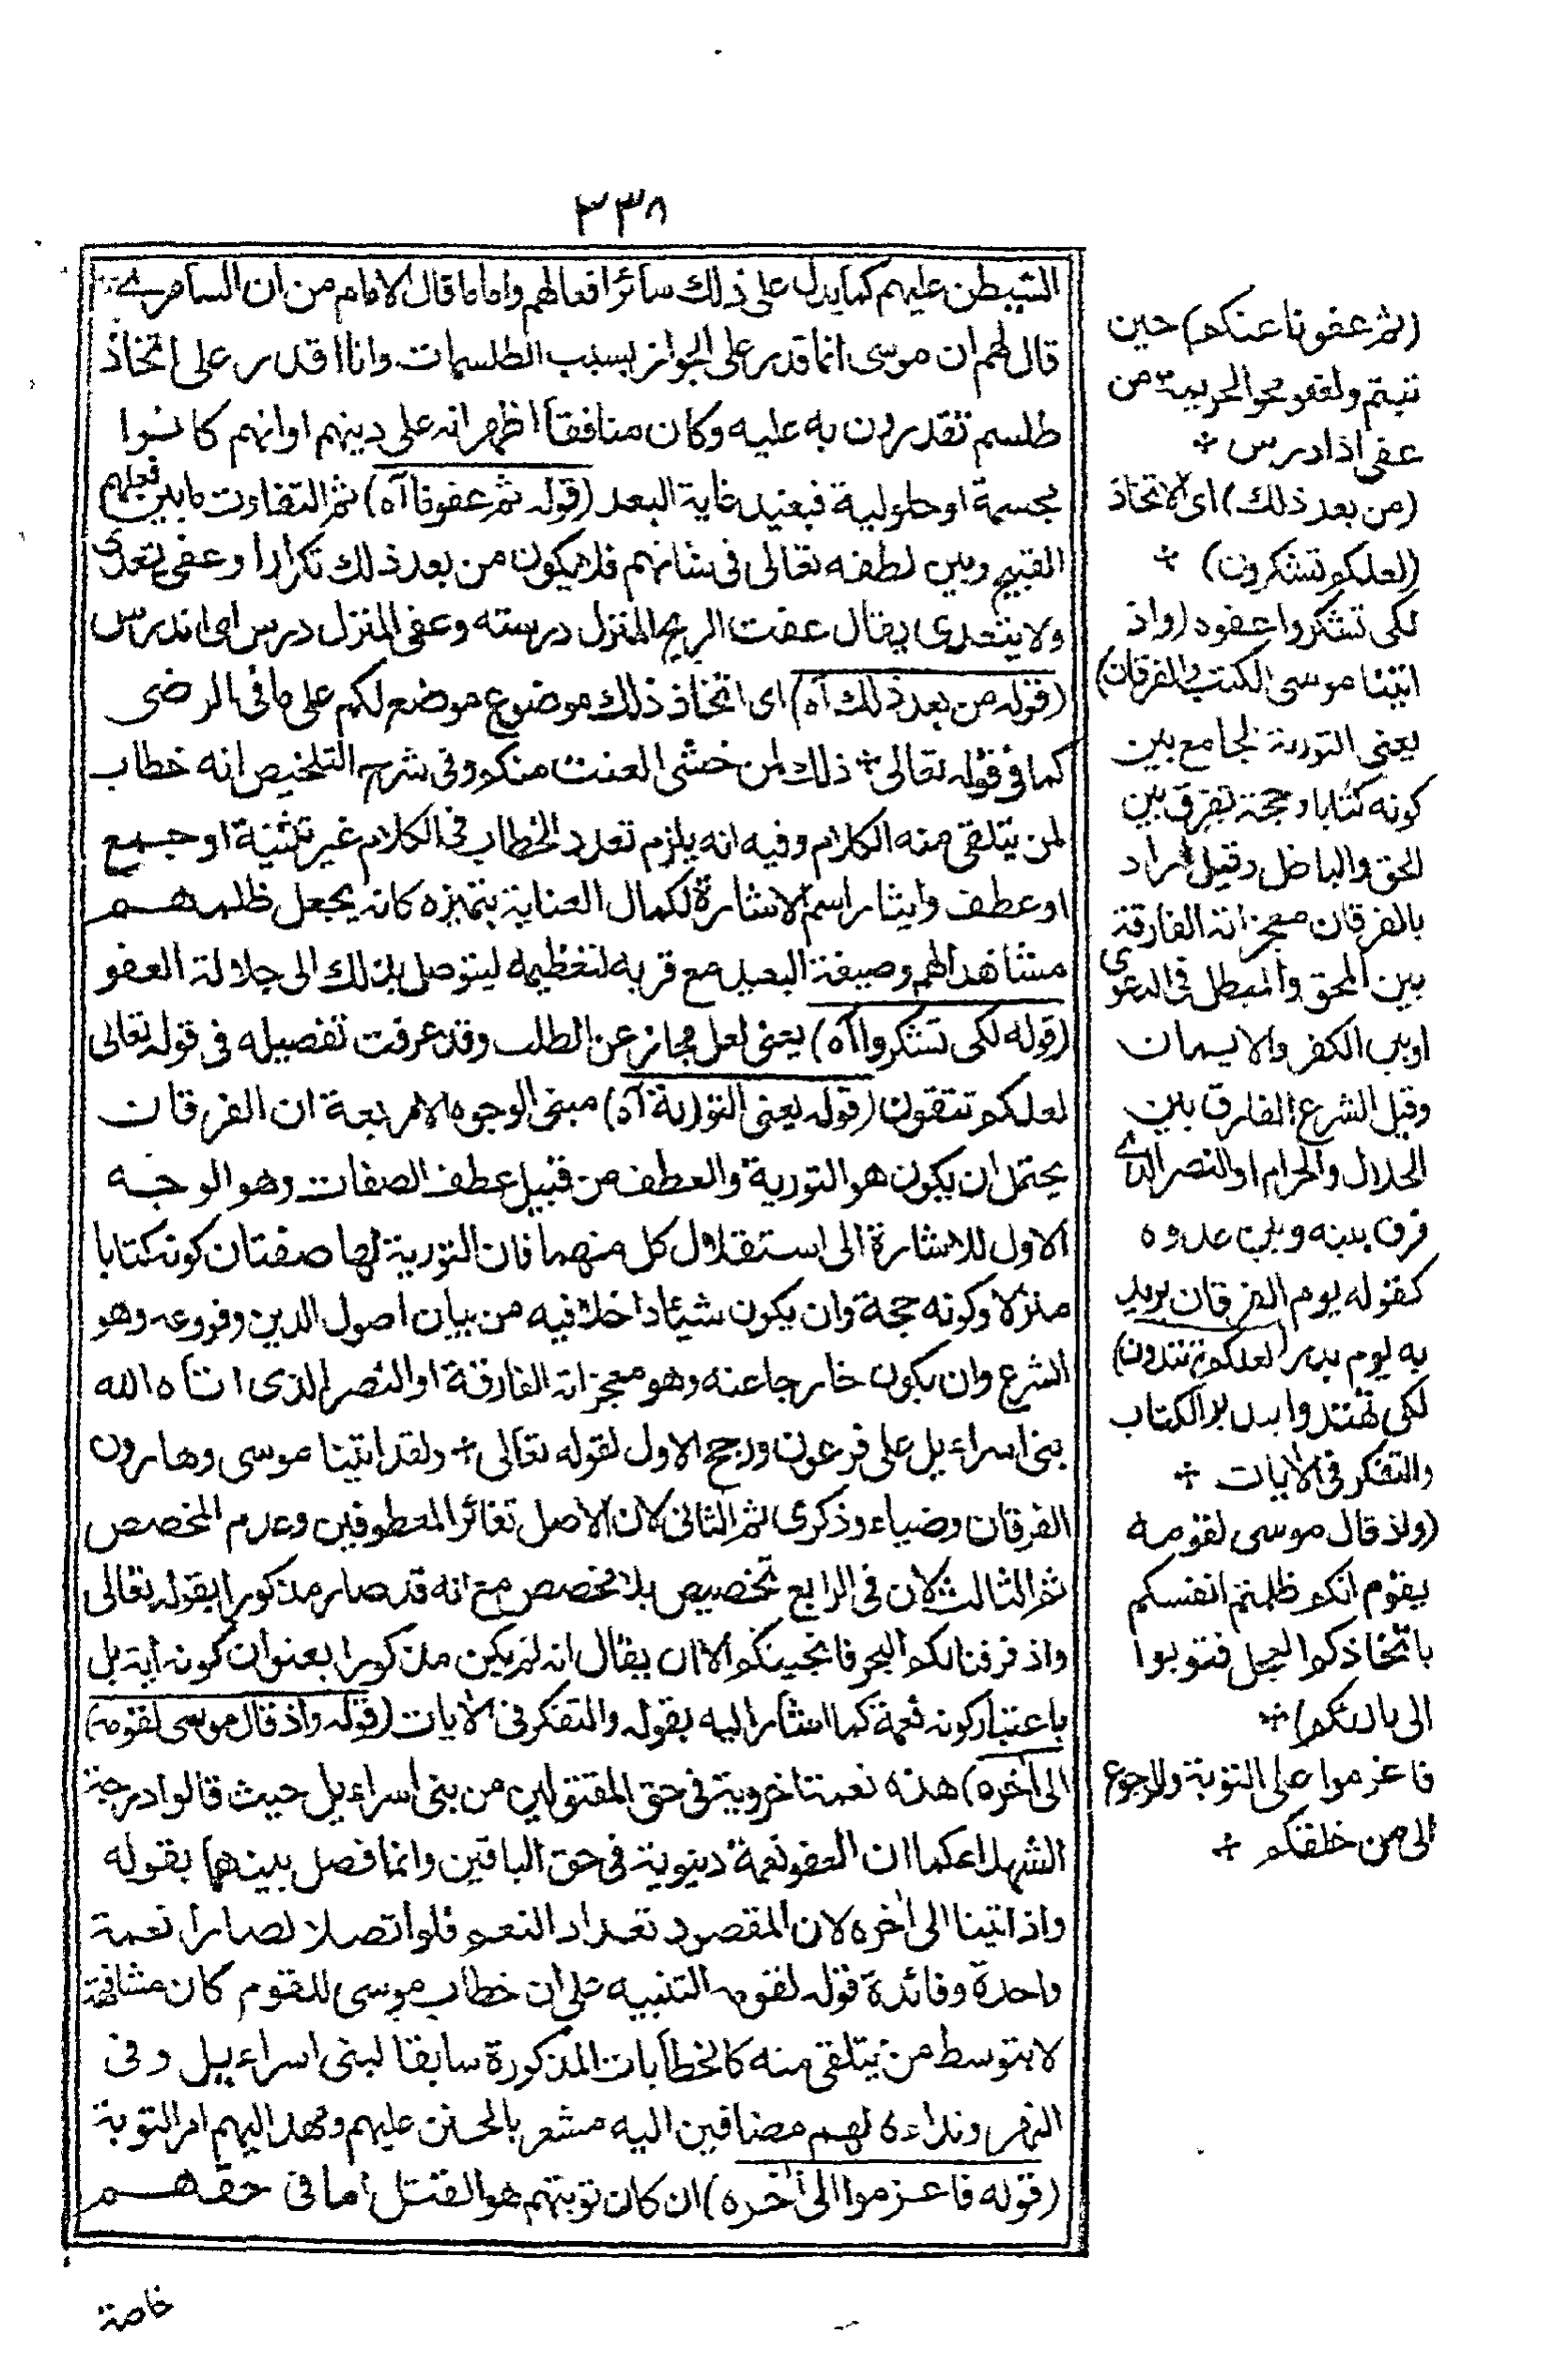 ٣٣٨
الشيطن عليهم كما يدل على ذلك سائر افعالهم واما ما قال الامام من ان السامرے
قال لهم ان موسى انما قدر على الجواز بسبب الطلسمات وانا اقدر على اتخاذ
طلسم تقدرون به عليه وكان منافقا اظهر انه على دينهم او انهم كانوا
مجسمة او حلولية فبعيد غاية البعد (قوله ثم عفونا آه) ثم التفاوت ما بين فعلهم
القبيح وبين لطفه تعالى فى شانهم فلا يكون من بعد ذلك تكرارا وعفى يتعدى
ولا يتعدى يقال عفت الريح المنزل درسته وعفى المنزل درس اى اندرس
(قوله من بعد ذلك آه) اى اتخاذ ذلك موضوع موضع لكم على ما فى الرضى
كما فى قوله تعالى ÷ ذلك لمن خشى العنت منكم وفى شرح التلخيص انه خطاب
لمن يتلقى منه الكلام وفيه انه يلزم تعدد الخطاب فى الكلام غير تثنية او جمع
او عطف وايثار اسم الاشارة لكمال العناية بتميزه كانه يجعل ظلمهم
مشاهدا لهم وصيغة البعيد مع قربه لتعظيمه ليتوصل بذلك الى جلالة العفو
(قوله لكى تشكروا آه) يعنى لعل مجاز عن الطلب وقد عرفت تفصيله فى قوله تعالى
لعلكم تتقون (قوله يعنى التورية آه) مبنى الوجوه الاربعة ان الفرقان
يحتمل ان يكون هو التورية والعطف من قبيل عطف الصفات وهو الوجه
الاول للاشارة الى استقلال كل منهما فان التورية لها صفتان كونه كتابا
منزلا وكونه حجة وان يكون شيئا داخلا فيه من بيان اصول الدين وفروعه وهو
الشرع وان يكون خارجا عنه وهو معجزاته الفارقة او النصر الذى اتاه الله
بنى اسراءيل على فرعون ورجح الاول لقوله تعالى ÷ ولقد اتينا موسى وهارون
الفرقان وضياء وذكرى ثم الثانى لان الاصل تغائر المعطوفين وعدم المخصص
ثم الثالث لان فى الرابع تخصيص بلا مخصص مع انه قد صار مذكورا بقوله تعالى
واذ فرقنا لكم البحر فانجينكم الا ان يقال انه لم يكن مذكورا بعنوان كونه اية بل
باعتبار كونه نعمة كما اشار اليه بقوله والتفكر فى الايات (قوله واذ قال موسى لقومه
الى اخره) هذه نعمة اخروية فى حق المقتولين من بنى اسراءيل حيث قالوا درجة
الشهداء كما ان العفو نعمة دينوية فى حق الباقين وانما فصل بينهما بقوله
واذ اتينا الى اخره لان المقصود تعداد النعم فلو اتصلا لصارا نعمة
واحدة وفائدة قوله لقومه التنبيه على ان خطاب موسى للقوم كان مشافهة
لا بتوسط من يتلقى منه كالخطابات المذكورة سابقا لبنى اسراءيل وفى
ونداءه لهم مضافين اليه مشعر بالحنن عليهم امر التوبة
(قوله فاعزموا الى اخره) ان كان توبتهم هو القتل اما فى حقهم
خاصة
(ثم عفونا عنكم) حين
تبتم والعفو محو الجريمة من
عفى اذا درس ÷
(من بعد ذلك) اى الاتخاذ
(لعلكم تشكرون) ÷
لكى تشكروا عفوه (واذ
اتينا موسى الكتب والفرقان)
يعنى التورية الجامع بين
كونه كتابا وحجة تفرق بين
الحق والباطل وقيل اراد
بالفرقان معجزاته الفارقة
بين المحق والمبطل فى الدعوى
او بين الكفر والايمان
وقيل الشرع الفارق بين
الحلال والحرام او النصر الذے
فرق بينه وبين عدوه
كقوله يوم الفرقان يريد
به يوم بدر (لعلكم تهتدون)
لكى تهتدوا بتدبر الكتاب
والتفكر فى الايات ÷
(واذ قال موسى لقومه
يقوم انكم ظلمتم انفسكم
باتخاذكم العجل فتوبوا
الى بارئكم) ÷
فاعزموا على التوبة والرجوع
الى من خلقكم ÷